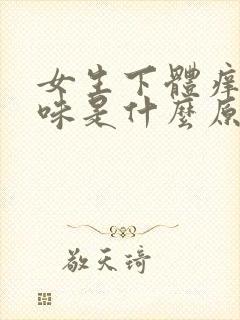 女生下體痒
味是什麼原
敬天琦